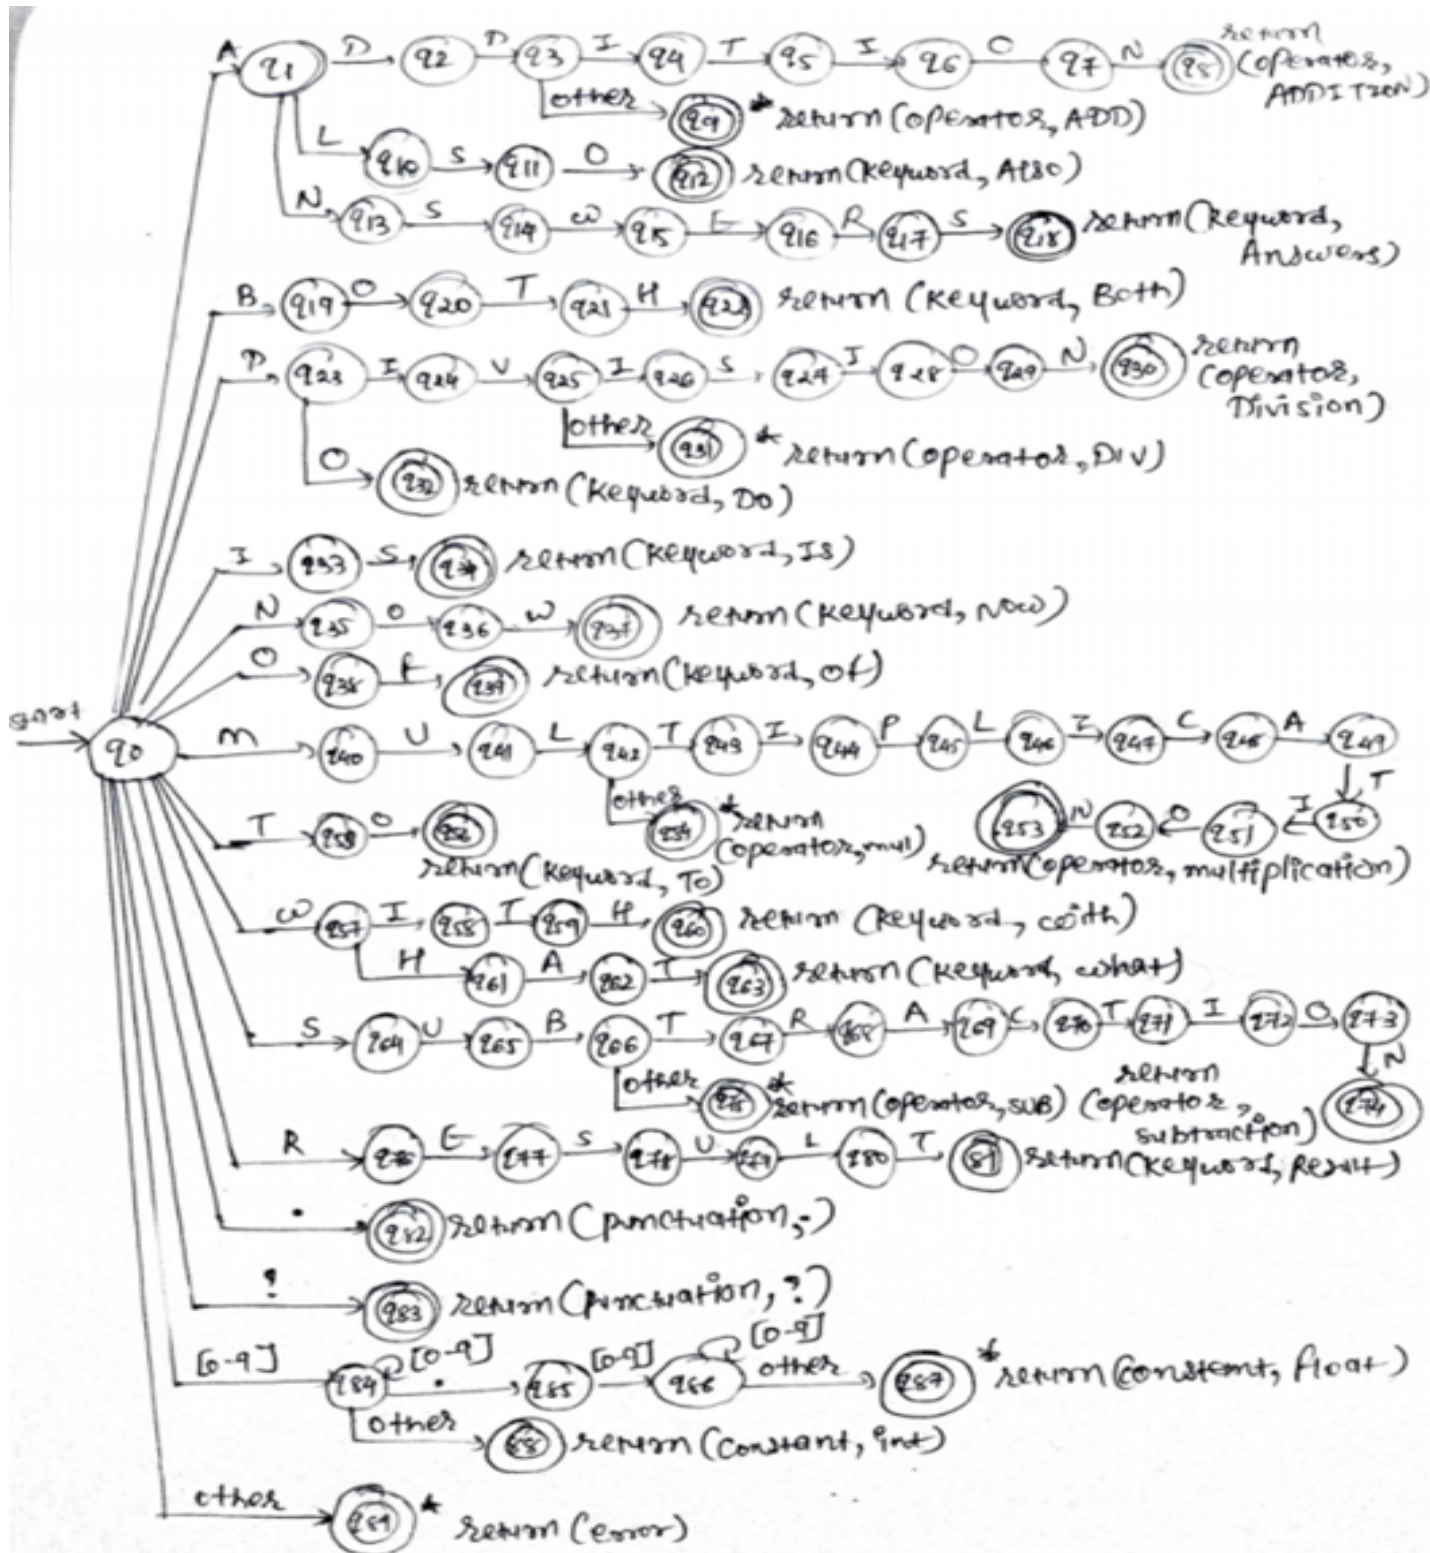 A q1 D q2 D q3 I q4 T q5 I q6 O q7 N q8 return (operator, ADDITION)
other q9 * return (operator, ADD)
L q10 S q11 O q12 return (keyword, Also)
N q13 S q14 W q15 E q16 R q17 S q18 return (keyword, Answers)
B q19 O q20 T q21 H q22 return (keyword, Both)
D q23 I q24 V q25 I q26 S q27 I q28 O q29 N q30 return (operator, Division)
other q31 * return (operator, DIV)
O q32 return (keyword, DO)
I q33 S q34 return (keyword, Is)
N q35 O q36 W q37 return (keyword, Now)
O q38 F q39 return (keyword, of)
start q0 M q40 U q41 L q42 T q43 I q44 P q45 L q46 I q47 C q48 A q49
T q50 I q51 O q52 N q53 return (operator, multiplication)
other q54 * return (operator, mul)
T O q56 return (keyword, To)
W q57 I q58 T q59 H q60 return (keyword, with)
H q61 A q62 T q63 return (keyword, what)
S q64 U q65 B q66 T q67 R q68 A q69 C q70 T q71 I q72 O q73
N q74 return (operator, subtraction)
other q75 * return (operator, SUB)
R q76 E q77 S q78 U q79 L q80 T 81 return (keyword, Result)
. q82 return (punctuation, .)
? q83 return (punctuation, ?)
[0-9] q84 [0-9] . q85 [0-9] q86 [0-9] other q87 * return (constant, float)
other 88 return (constant, int)
other q89 * return (error)